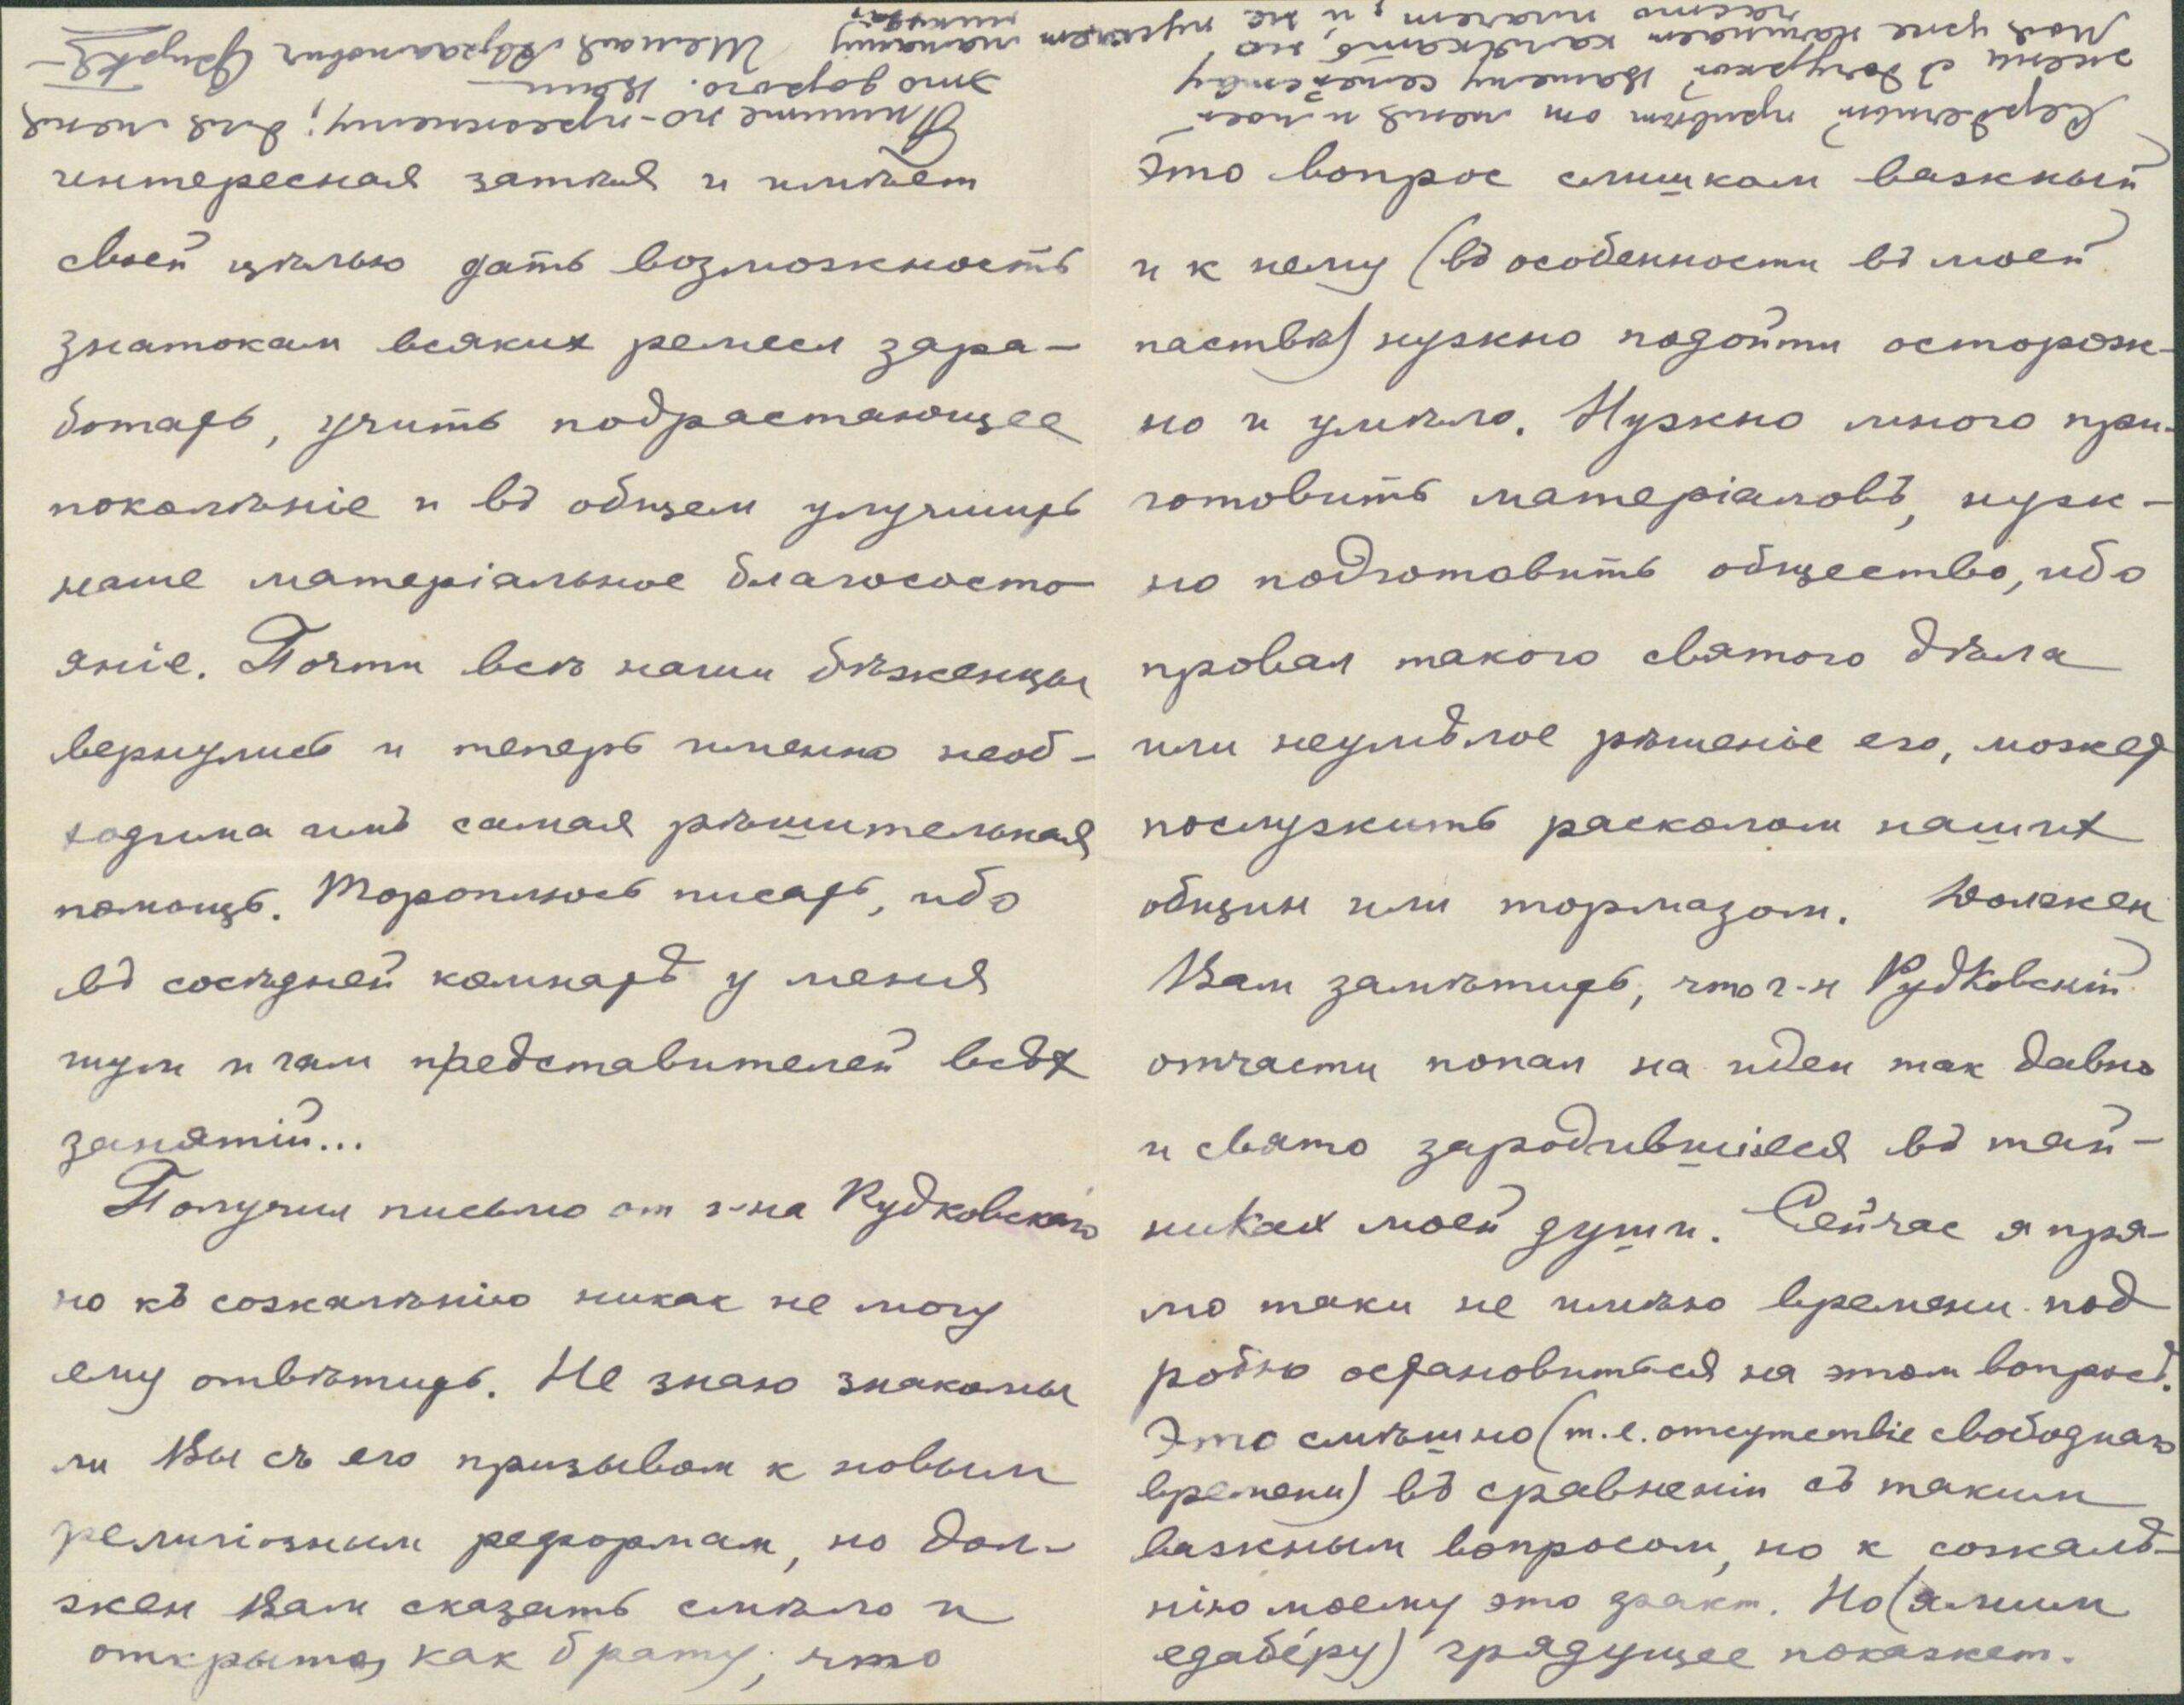 интересная затѣя и имѣет
своей цѣлью дать возможность
знатокам всяких ремесл зара-
ботать, учить подрастающее
поколѣніе и въ общем улучшить
наше матеріальное благососто-
яніе. Почти всѣ наши бѣженцы
вернулись и теперь именно необ-
ходима имъ самая рѣшительная
помощь. Тороплюсь писать, ибо
въ сосѣдней комнатѣ у меня
шум и гам представителей всѣх
занятій...
Получил письмо от г-на Рудковскаго
но къ сожалѣнію никак не могу
ему отвѣтить. Не знаю знакомы
ли Вы съ его призывом к новым
религіозным реформам, но дол-
жен Вам сказать смѣло и
открыто, как брату, что
Это вопрос слишком важный
и к нему (въ особенности въ моей
паствѣ) нужно подойти осторож-
но и умѣло. Нужно много при-
готовить матеріаловъ, нуж-
но подготовить общество, ибо
провал такого святого дѣла
или неумѣлое рѣшеніе его, может
послужить расколом наших
общин или тормазом. Должен
Вам замѣтить, что г-н Рудковскій
отчасти попал на идеи так давно
и свято зародившіяся въ тай-
никах моей души. Сейчас я пря-
мо таки не имѣю времени под
робно остановиться на этом вопросѣ.
Это смѣшно (т.е. отсутствіе свободнаго
времени) въ сравненіи съ таким
важным вопросом, но к сожалѣ-
нію моему это факт. Но (
едабéру) грядущее покажет.
Сердечный привѣт от меня и моей
жены с дочуркой Вашему семейству
Моя уже начинает калякать, но
часто плачет, и не пускает мамашу
никуда.
Пишите по-прежнему; для меня
это дорого. Ваш
Шемая Авраамович Фирковичъ